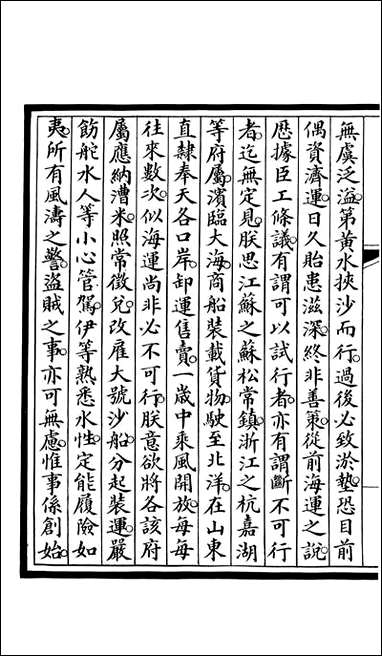 無虞泛溢第黃水挾沙而行過後必致淤墊恐目前
偶資濟運日久貽患滋深終非善策從前海運之說
歷據臣工條議有謂可以試行者亦有謂斷不可行
者迄無定見朕思江蘇之蘇松常鎮浙江之杭嘉湖
等府屬濱臨大海商船裝載貨物駛至北洋在山東
直隸奉天各口岸卸運售賣一歲中乘風開放每每
往來數次似海運尚非必不可行朕意欲將各該府
屬應納漕米照常徵兌改雇大號沙船分起裝運嚴
飭舵水人等小心管駕伊等熟悉水性定能履險如
夷所有風濤之警盜賊之事亦可無慮惟事係創始